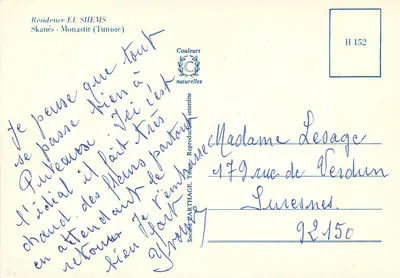 Résidence EL SHEMS
Skanès - Monastir (Tunisie)
Couleurs
C
naturelles
H 152
Je pense que tout
se passe bien à
Puteaux. Ici c'est
l'idéal il fait très
chaud. des fleurs partout
en attendant le
retour Je t'embrasse
bien fort
Société CARTHAGE, Tunis Reproduction interdite
Madame Lesage
179 rue de Verdun
Suresnes.
92150